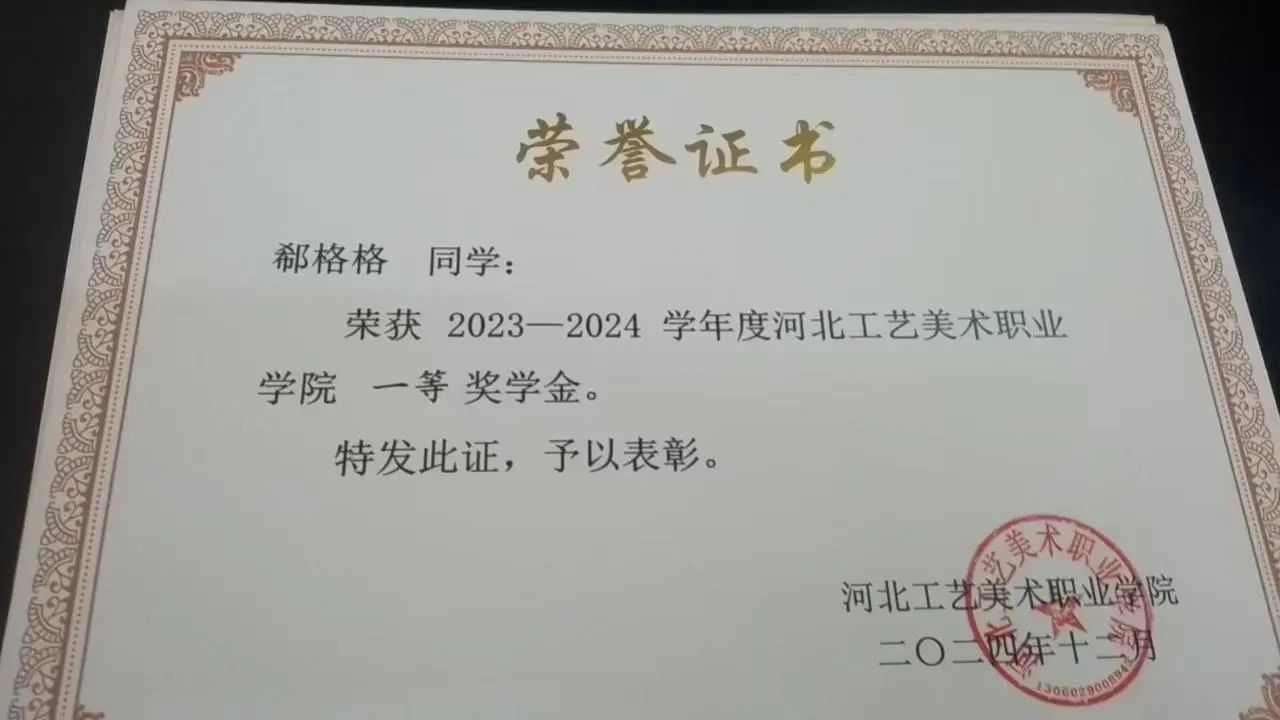 荣誉证书
郗格格 同学：
荣获 2023—2024 学年度河北工艺美术职业
学院 一等 奖学金。
特发此证，予以表彰。
河北工艺美术职业学院
二〇二四年十二月
河北工艺美术职业学院